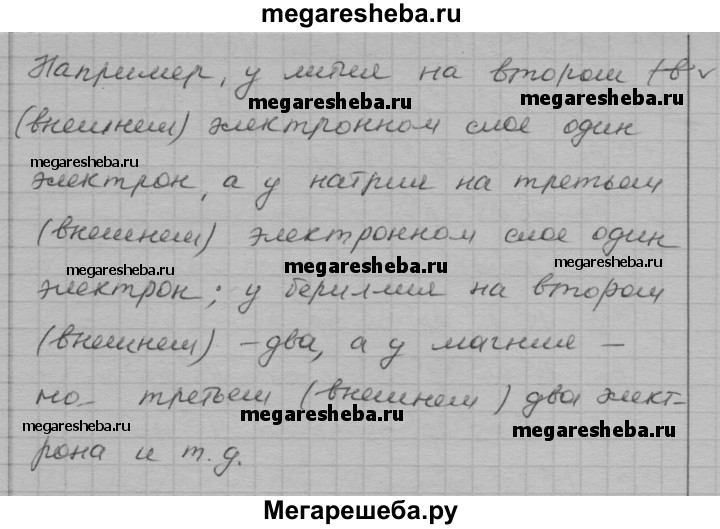 megaresheba.ru
Например, у лития на втором
megaresheba.ru
(внешнем) электронном слое один
megaresheba.ru
электрон, а у натрия на третьем
(внешнем) электронном слое один
megaresheba.ru megaresheba.ru megaresheba.ru
электрон; у бериллия на втором
(внешнем) - два, а у магния -
на третьем (внешнем) два элект-
megaresheba.ru megaresheba.ru megaresheba.ru
рона и т.д.
Мегарешеба.ру